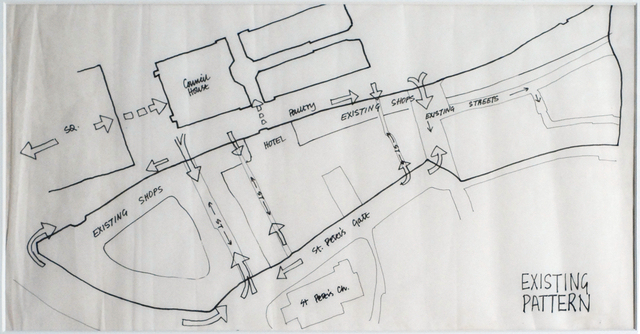 Council
House
SQ.
Poultry
EXISTING SHOPS
EXISTING STREETS
HOTEL
ST
EXISTING SHOPS
ST
ST
St. Peter's Gate
St Peter's Ch.
EXISTING
PATTERN